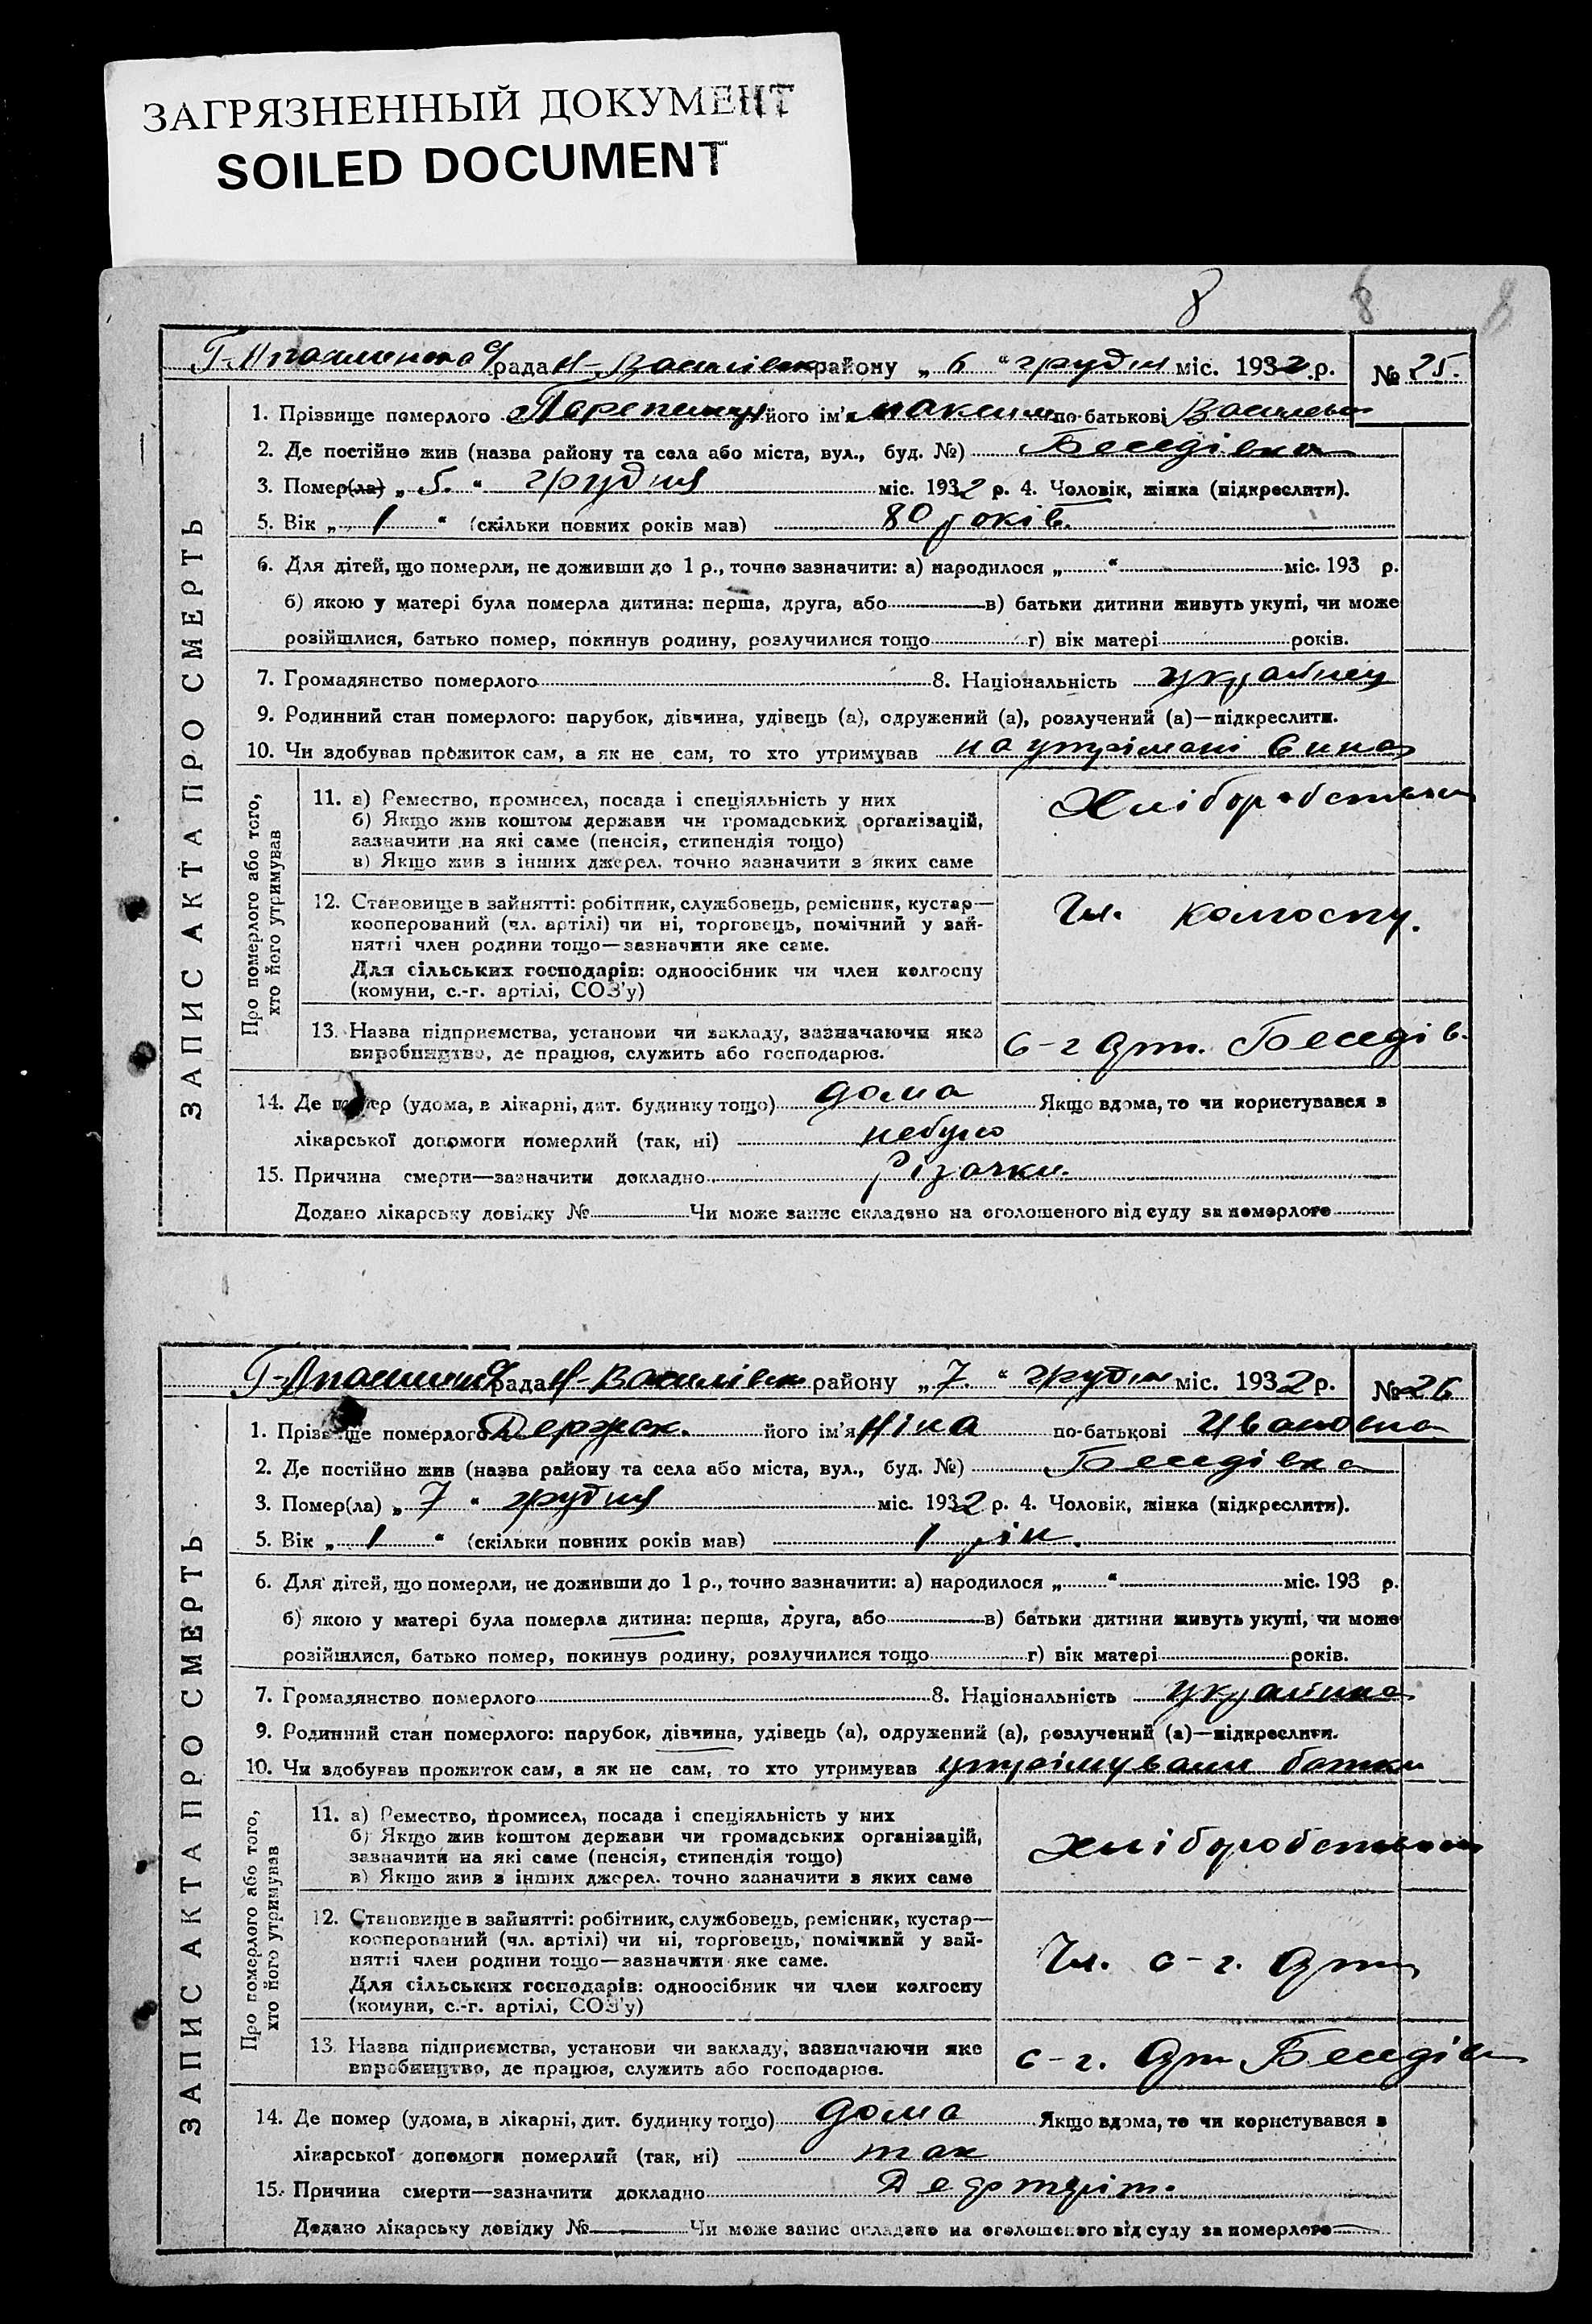 ЗАГРЯЗНЕННЫЙ ДОКУМЕНТ
SOILED DOCUMENT
8 8 8
рада Н-Василівськ району „ 6 “ грудня міс. 1932 р. № 25.
ЗАПИС АКТА ПРО СМЕРТЬ
1. Прізвище померлого його ім'я Максим по-батькові Васильов
2. Де постійно жив (назва району та села або міста, вул., буд. №) Беседівка
3. Помер(ла) „ 5. “ грудня міс. 1932 р. 4. Чоловік, жінка (підкреслити).
5. Вік „ 1 “ (скільки повних років мав) 80 років.
6. Для дітей, що померли, не доживши до 1 р., точно зазначити: а) народилося „ “ міс. 193 р.
б) якою у матері була померла дитина: перша, друга, або в) батьки дитини живуть укупі, чи може
розійшлися, батько помер, покинув родину, розлучилися тощо г) вік матері років.
7. Громадянство померлого 8. Національність українец
9. Родинний стан померлого: парубок, дівчина, удівець (а), одружений (а), розлучений (а)—підкреслити.
10. Чи здобував прожиток сам, а як не сам, то хто утримував на утрімані сина
Про померлого або того, хто його утримував
11. а) Ремество, промисел, посада і спеціяльність у них
б) Якщо жив коштом держави чи громадських організацій,
зазначити на які саме (пенсія, стипендія тощо)
в) Якщо жив з інших джерел. точно зазначити з яких саме
Хліборобством
12. Становище в зайнятті: робітник, службовець, ремісник, кустар—
кооперований (чл. артілі) чи ні, торговець, помічний у зай-
нятті член родини тощо—зазначити яке саме.
Для сільських господарів: одноосібник чи член колгоспу
(комуни, с.-г. артілі, СОЗ'у)
Чл. колгоспу.
13. Назва підприємства, установи чи закладу, зазначаючи яке
виробництво, де працює, служить або господарює.
с-г арт. Беседів.
14. Де помер (удома, в лікарні, дит. будинку тощо) дома Якщо вдома, то чи користувався з
лікарської допомоги померлий (так, ні) небуло
15. Причина смерти—зазначити докладно різачки.
Додано лікарську довідку № Чи може запис складено на оголошеного від суду за померлого
рада Н-Василівськ району „ 7. “ грудня міс. 1932 р. № 26
ЗАПИС АКТА ПРО СМЕРТЬ
1. Прізвище померлого Держак. його ім'я Ніна по-батькові Ивановна
2. Де постійно жив (назва району та села або міста, вул., буд. №) Беседівка
3. Помер(ла) „ 7 “ грудня міс. 1932 р. 4. Чоловік, жінка (підкреслити).
5. Вік „ 1 “ (скільки повних років мав) 1 рік.
6. Для дітей, що померли, не доживши до 1 р., точно зазначити: а) народилося „ “ міс. 193 р.
б) якою у матері була померла дитина: перша, друга, або в) батьки дитини живуть укупі, чи може
розійшлися, батько помер, покинув родину, розлучилися тощо г) вік матері років.
7. Громадянство померлого 8. Національність українка
9. Родинний стан померлого: парубок, дівчина, удівець (а), одружений (а), розлучений (а)—підкреслити.
10. Чи здобував прожиток сам, а як не сам, то хто утримував утрімували батьки
Про померлого або того, хто його утримував
11. а) Ремество, промисел, посада і спеціяльність у них
б) Якщо жив коштом держави чи громадських організацій,
зазначити на які саме (пенсія, стипендія тощо)
в) Якщо жив з інших джерел. точно зазначити з яких саме
Хліборобством
12. Становище в зайнятті: робітник, службовець, ремісник, кустар—
кооперований (чл. артілі) чи ні, торговець, помічний у зай-
нятті член родини тощо—зазначити яке саме.
Для сільських господарів: одноосібник чи член колгоспу
(комуни, с.-г. артілі, СОЗ'у)
Чл. с-г. арт
13. Назва підприємства, установи чи закладу, зазначаючи яке
виробництво, де працює, служить або господарює.
с-г. арт Беседів
14. Де помер (удома, в лікарні, дит. будинку тощо) дома Якщо вдома, то чи користувався з
лікарської допомоги померлий (так, ні) так
15. Причина смерти—зазначити докладно Дефтеріт.
Додано лікарську довідку № Чи може запис складено на оголошеного від суду за померлого